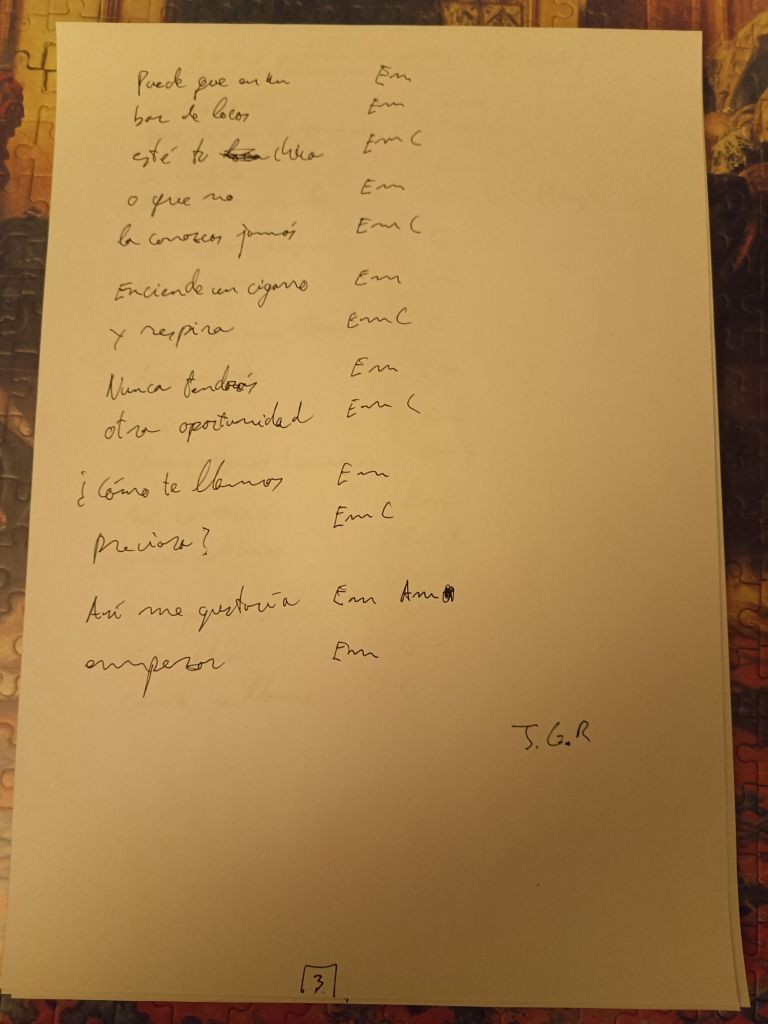 Puede que en un Em
bar de locos Em
esté tu chica Em C
o que no Em
la conozcas jamás Em C
Enciende un cigarro Em
y respira Em C
Nunca tendrás Em
otra oportunidad Em C
¿Cómo te llamas Em
preciosa? Em C
Así me gustaría Em Am
empezar Em
J.G.R
3